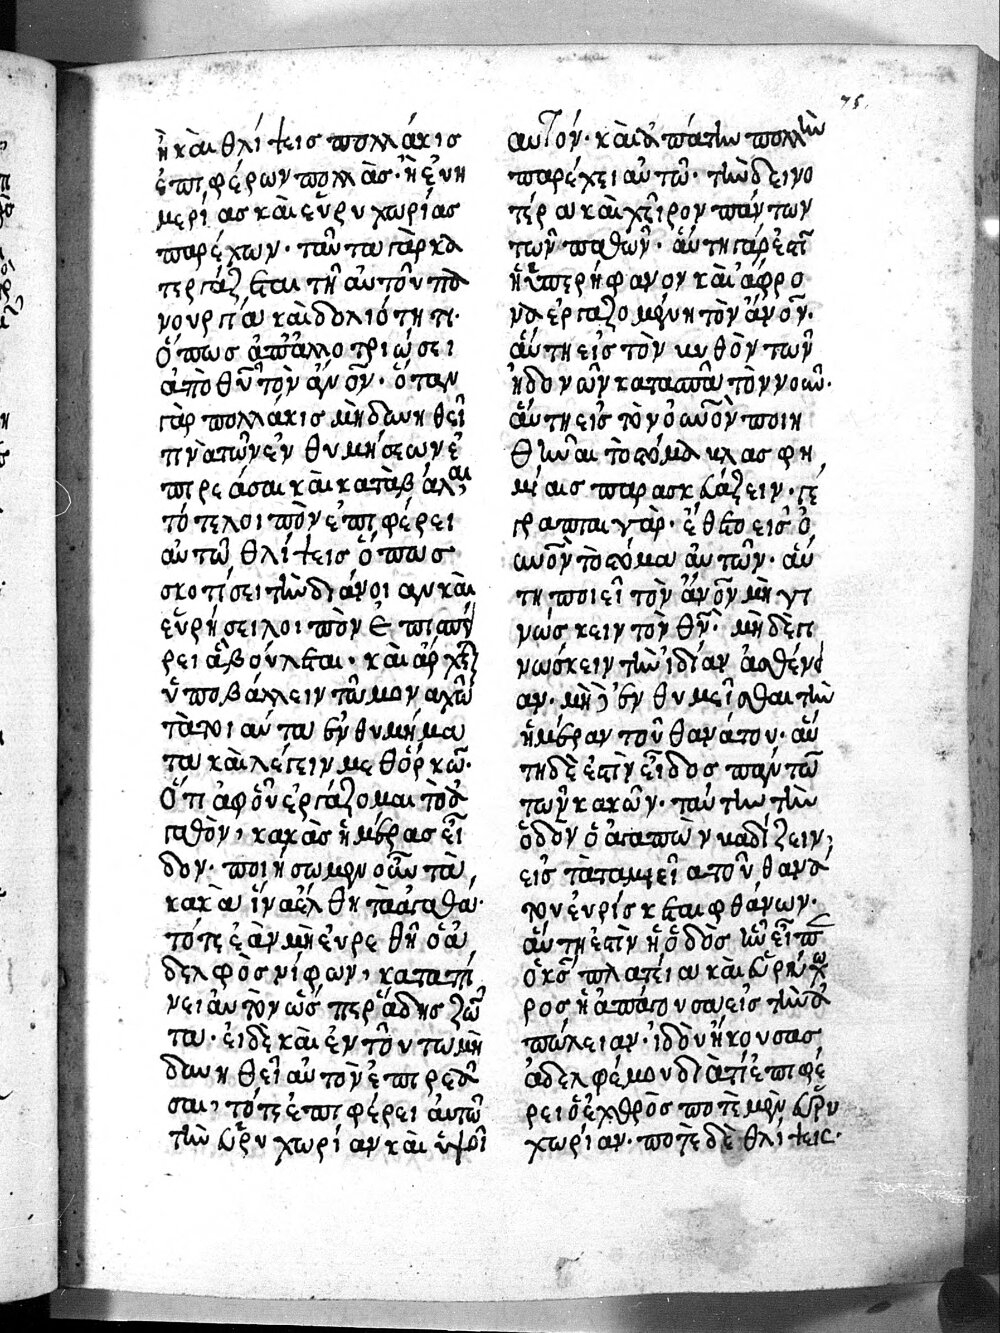 75
ἢ καὶ θλίψεις πολλάκις
ἐπιφέρων πολλὰς· ἢ εὐη
μερίας καὶ εὐρυχωρίας
παρέχων· ταῦτα γὰρ κα
τεργάζεται τῆ αὐτοῦ πα
νουργία καὶ δολιότητι·
ὅπως ἀπαλλοτριώσει
ἀπὸ θυ τὸν ἄνον· ὅταν
γὰρ πολλάκις μὴ δυνηθεῖ
τινὰ τῶν ἐνθυμήσεων ἐ
πιρεάσαι καὶ καταβάλαι,
τότε λοιπὸν ἐπιφέρει
αὐτῶ θλίψεις ὅπως
σκοτίσει τὴν διάνοιαν καὶ
εὑρήσει λοιπὸν
ρει ἃ βούλεται· καὶ ἄρχεται
ὑποβάλλειν τῶ μοναχῶ
τὰ τοιαῦτα ἐνθυμήμα
τα καὶ λέγειν μεθόρκω·
ὅτι ἀφοῦ ἐργάζομαι τὸ ἀ
γαθὸν, κακὰς ἡμέρας εἶ
δον· ποιήσωμεν οὖν τὰ
κακὰ ἵνα ἔλθη τὰ ἀγαθά·
τότε ἐὰν μὴ εὑρεθῆ ὁ ἀ
δελφὸς νίφων, καταπί
νει αὐτὸν ὥσπερ ἅδης ζῶν
τα· εἰ δὲ καὶ ἐν τούτω μὴ
δυνηθεῖ αὐτὸν ἐπιρεά
σαι, τότε ἐπιφέρει αὐτῶ
τὴν εὐρυχωρίαν καὶ ὑψοῖ
αὐτόν· καὶ ἀπάτην πολλὴν
παρέχει αὐτῶ· τὴν δεινο
τέρα καὶ χεῖρον πάντων
τῶν παθῶν· αὕτη γάρ ἐστι
ἡ ὑπερήφανον καὶ ἄφρο
να ἐργαζομένη τὸν ἄνον·
αὕτη εἰς τὸν βυθὸν τῶν
ἡδονῶν κατασπᾶ τὸν νοῦν·
αὕτη εἰς τὸν οὐνον ποιη
θῆναι τὸ στόμα βλασφη
μίαις παρασκευάζειν· γέ
γραπται γάρ· ἔθετο εἰς ὀ
υνον τὸ στόμα αὐτῶν· αὕ
τη ποιεῖ τὸν ἄνον μὴ γι
νώσκειν τὸν θν· μὴ δὲ γι
νώσκειν τὴν ἰδίαν ἀσθένει
αν· μὴ ἐνθυμεῖσθαι τὴν
ἡμέραν τοῦ θανάτου· αὕ
τη δέ ἐστιν εἶδος πάντων
τῶν κακῶν· ταύτην τὴν
ὁδὸν ὁ ἀγαπῶν βαδίζειν,
εἰς τὰ ταμιεῖα τοῦ θανά
του εὑρίσκεται φθάνων·
αὕτη ἐστὶν ἡ ὁδὸς ἣν εἶπεν
ὁ κς πλατεῖα καὶ εὐρύχω
ρος ἡ ἀπάγουσα εἰς τὴν ἀ
πώλειαν· ἰδοὺ ἤκουσας
ἀδελφέ μου διατί ἐπιφέ
ρει ὁ ἐχθρὸς ποτὲ μὲν εὐρυ
χωρίαν· ποτὲ δὲ θλίψεις·